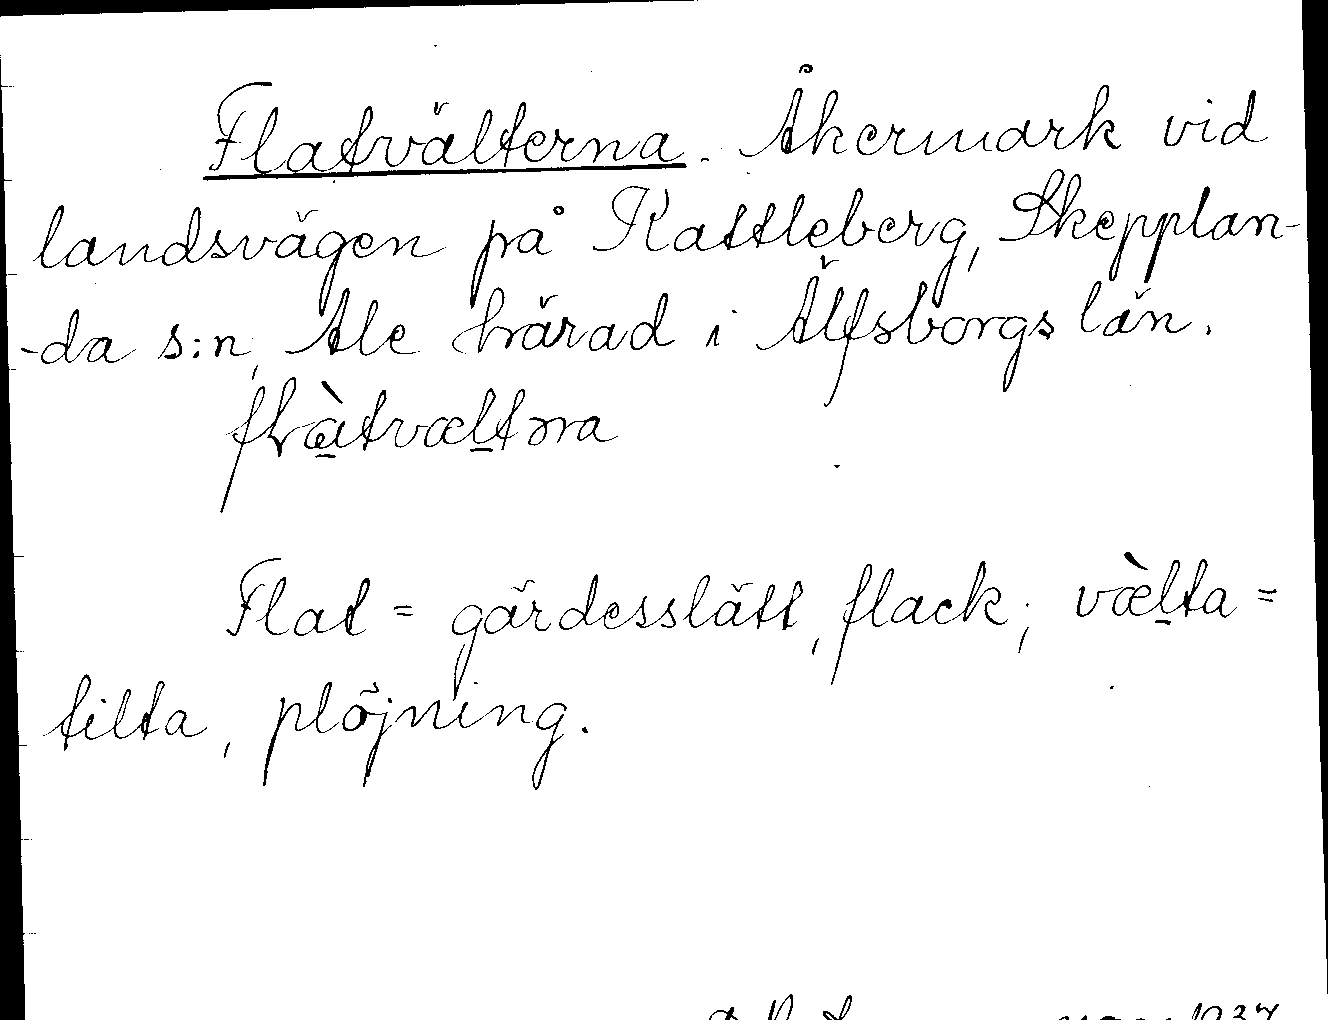 Flatvälterna. Åkermark vid
landsvägen på Kattleberg, Skepplan-
-da s:n, Ale härad i Älfsborgs län.
Flat = gärdesslätt, flack; væ̀lta =
tilta, plöjning.
1937